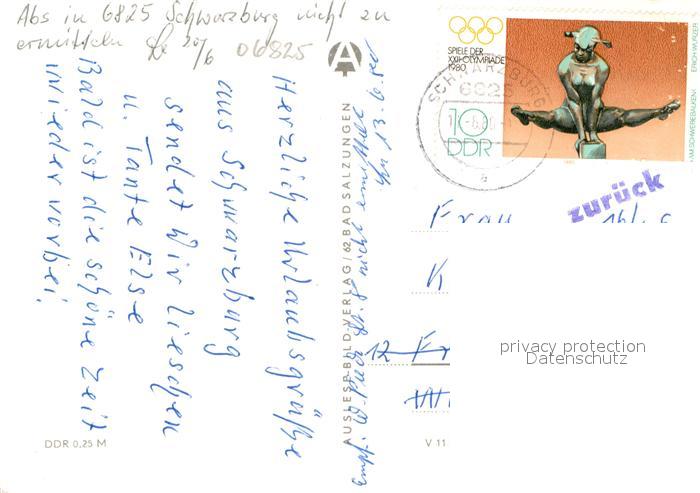 Abs in 6825 Schwarzburg nicht zu
ermitteln 20/6 06825
Herzliche Urlaubsgrüße
aus Schwarzburg
sendet Dir Lieschen
u. Tante Else
Bald ist die schöne Zeit
wieder vorbei.
AUSLESE-BILD-VERLAG / 62 BAD SALZUNGEN
Empf. nicht 13.6.80
SPIELE DER
XXII. OLYMPIADE
1980
10
DDR
"AM SCHWEBEBALKEN"
ERICH WURZER
SCHWARZBURG
6825
a
zurück
Frau
K
12 Fr
privacy protection
Datenschutz
DDR 0,25 M
V 11